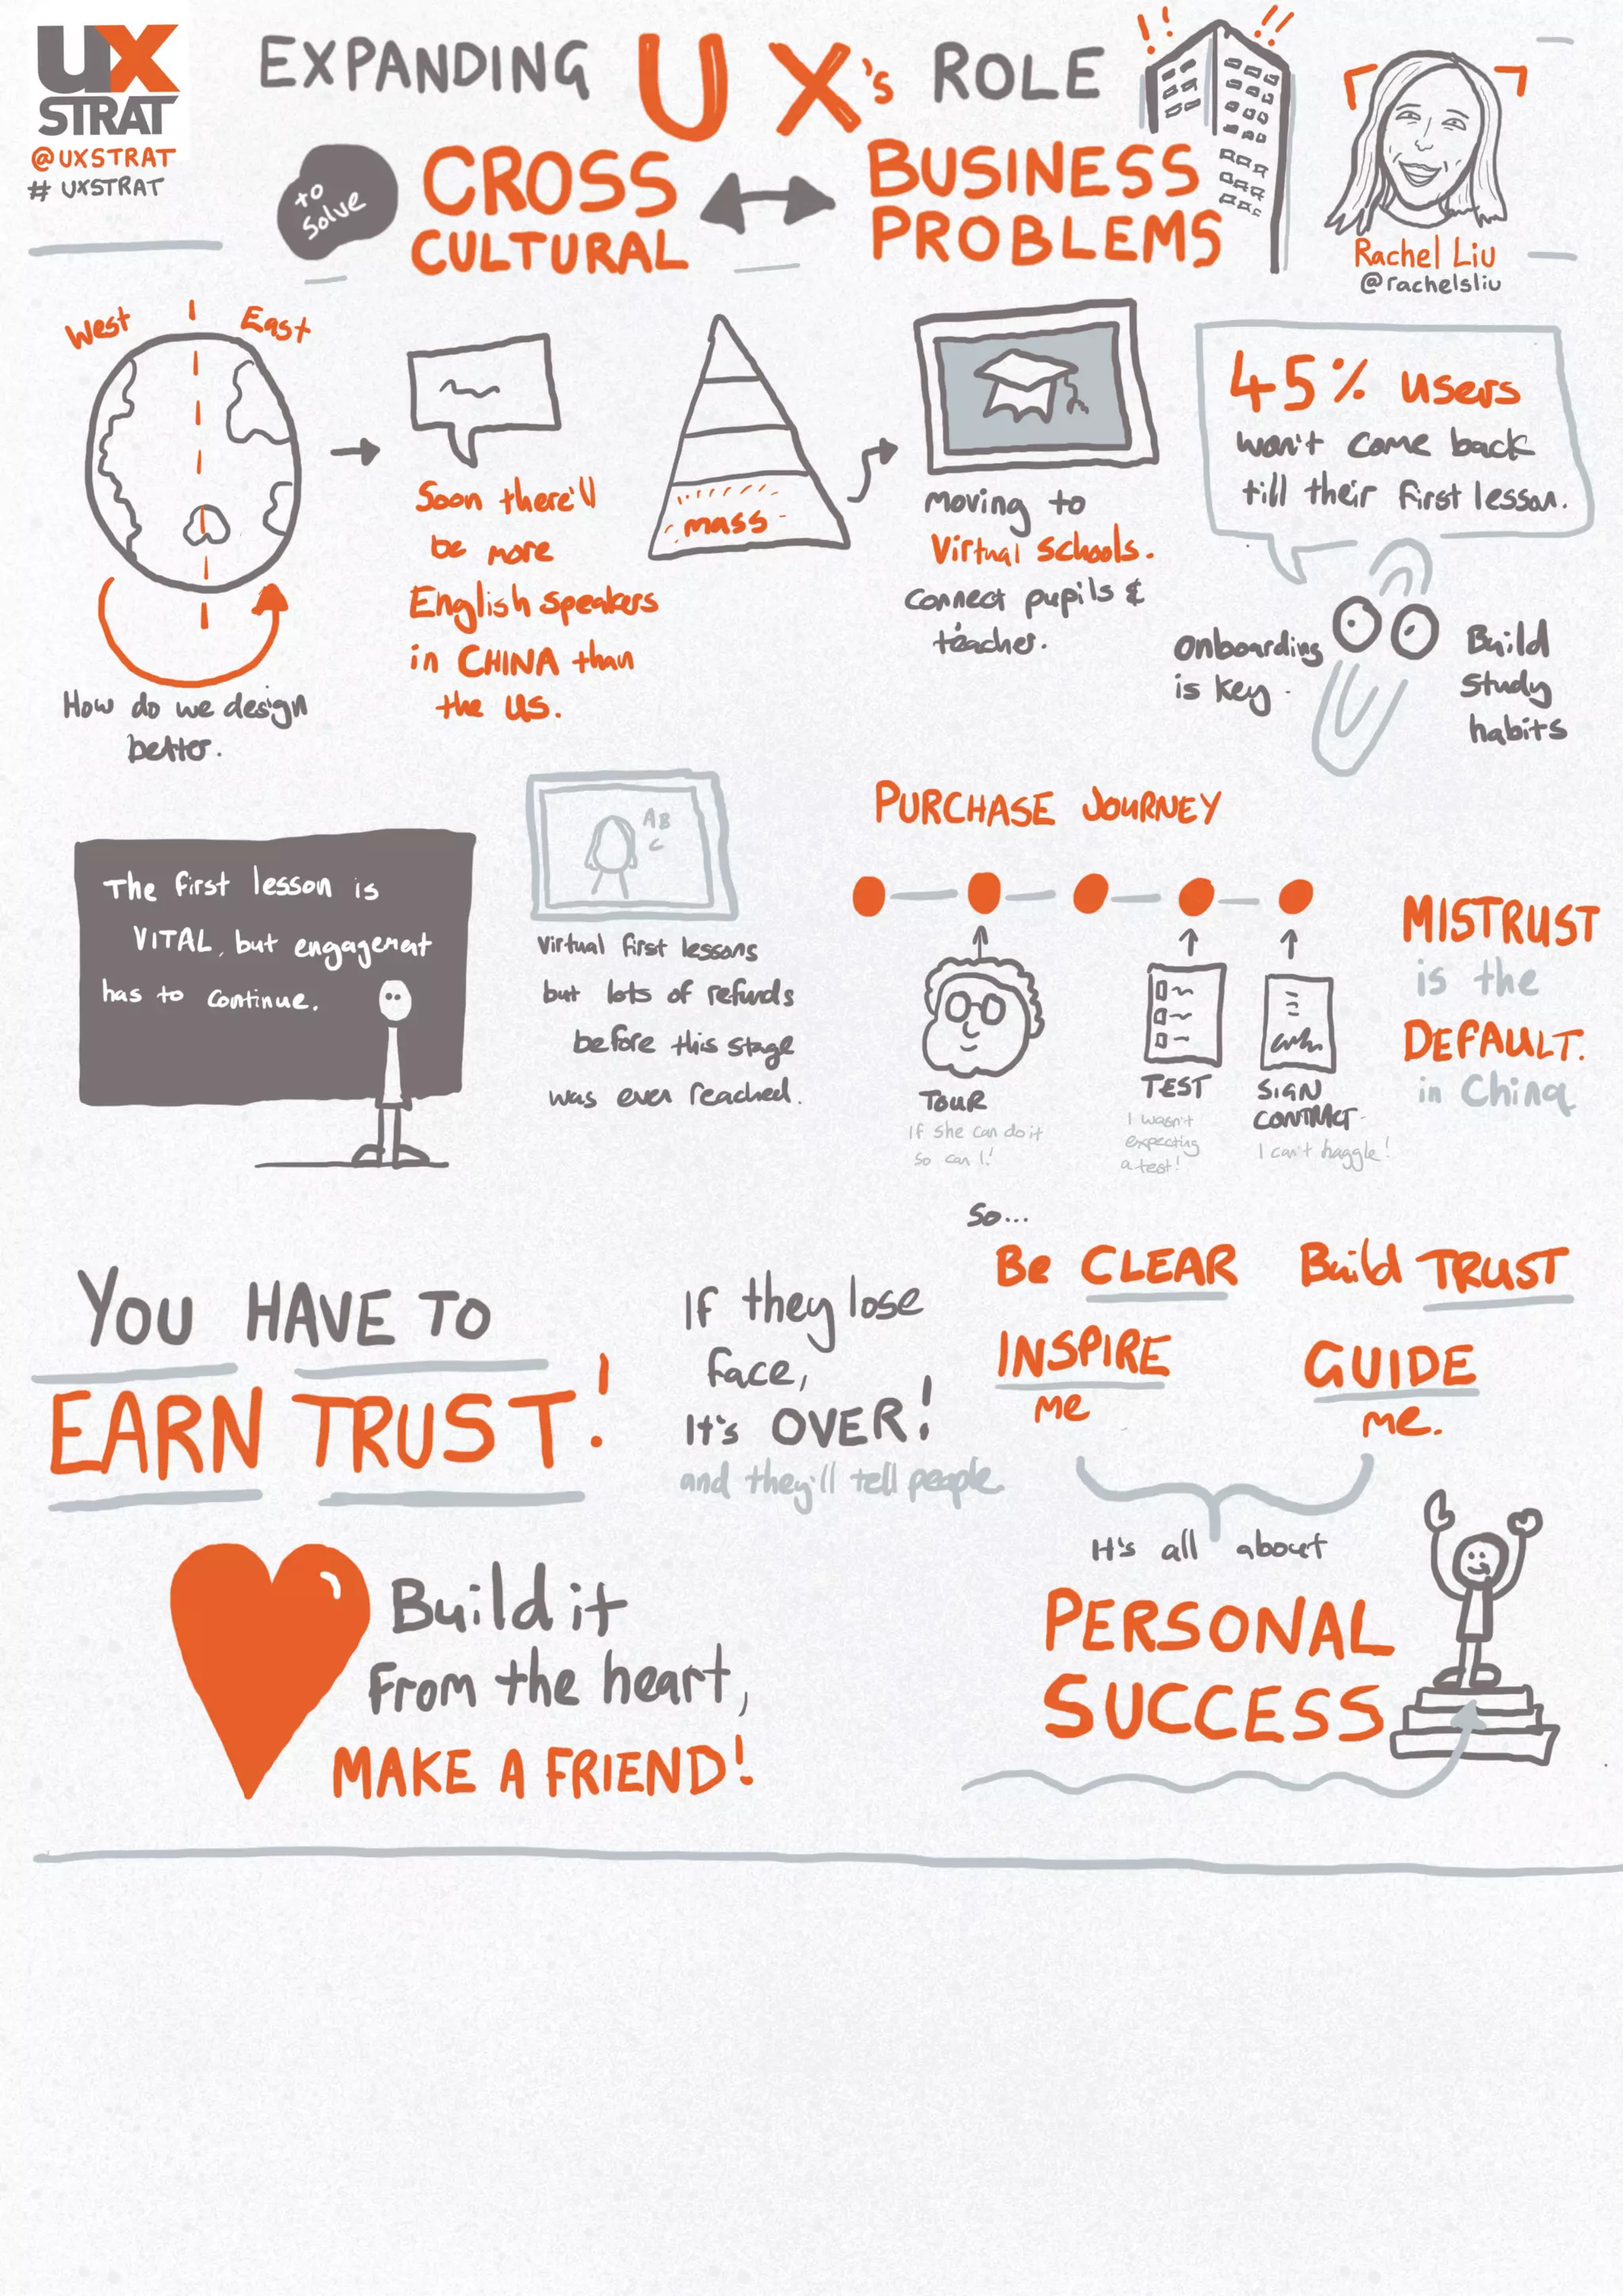 UX
STRAT
@UXSTRAT
# UXSTRAT
EXPANDING UX's ROLE
to
solve
CROSS
CULTURAL
BUSINESS
PROBLEMS
Rachel Liu
@rachelsliu
West
East
How do we design
better.
Soon there'll
be more
English speakers
in CHINA than
the US.
mass
moving to
Virtual schools.
connect pupils &
teacher.
45% users
won't come back
till their first lesson.
onboarding
is key.
Build
study
habits
The first lesson is
VITAL, but engagement
has to continue.
AB
C
Virtual first lessons
but lots of refunds
before this stage
was even reached.
PURCHASE JOURNEY
TOUR
If she can do it
so can I!
TEST
I wasn't
expecting
a test!
SIGN
CONTRACT
I can't haggle!
MISTRUST
is the
DEFAULT.
in China
YOU HAVE TO
EARN TRUST!
If they lose
face,
It's OVER!
and they'll tell people.
So...
Be CLEAR
Build TRUST
INSPIRE
me
GUIDE
me.
It's all about
PERSONAL
SUCCESS
Build it
from the heart,
MAKE A FRIEND!